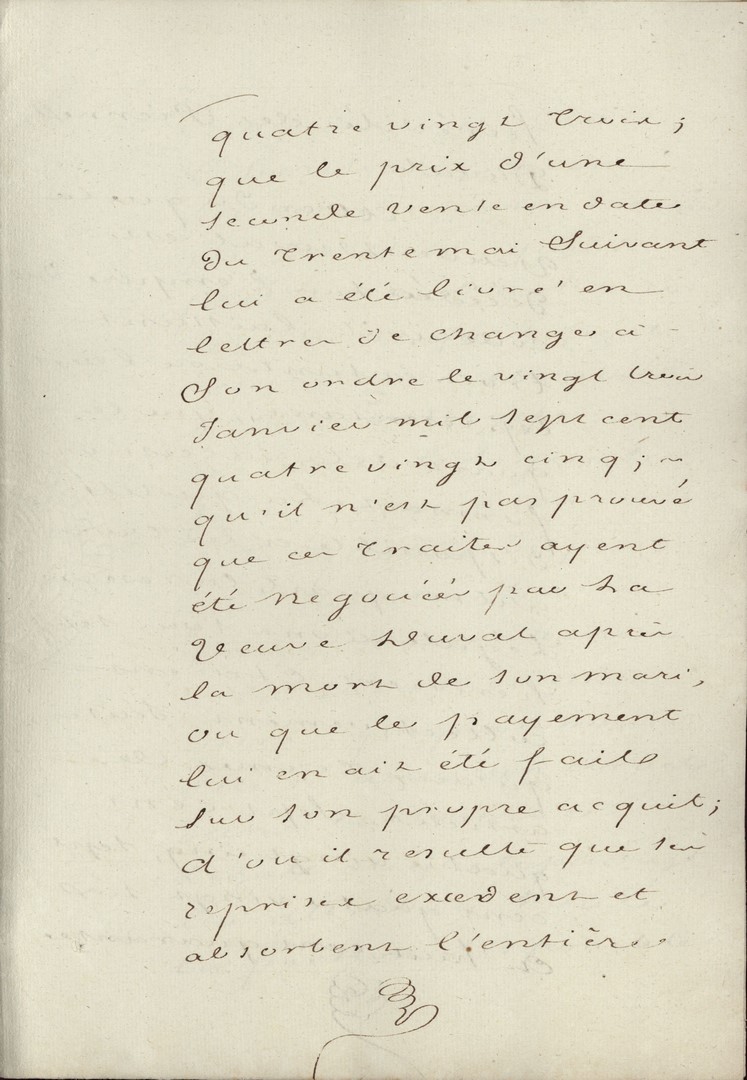 quatre vingt trois ;
que le prix d'une
seconde vente en date
du trente mai Suivant
lui a été livré en
lettres de change à
Son ordre le vingt trois
Janvier mil sept cent
quatre vingt cinq ;
qu'il n'est pas prouvé
que ces traites ayent
été negociées par la
Veuve Duval après
la mort de son mari,
ou que le payement
lui en ait été fait
sur son propre acquit ;
d'ou il resulte que ses
reprises excedent et
absorbent l'entière